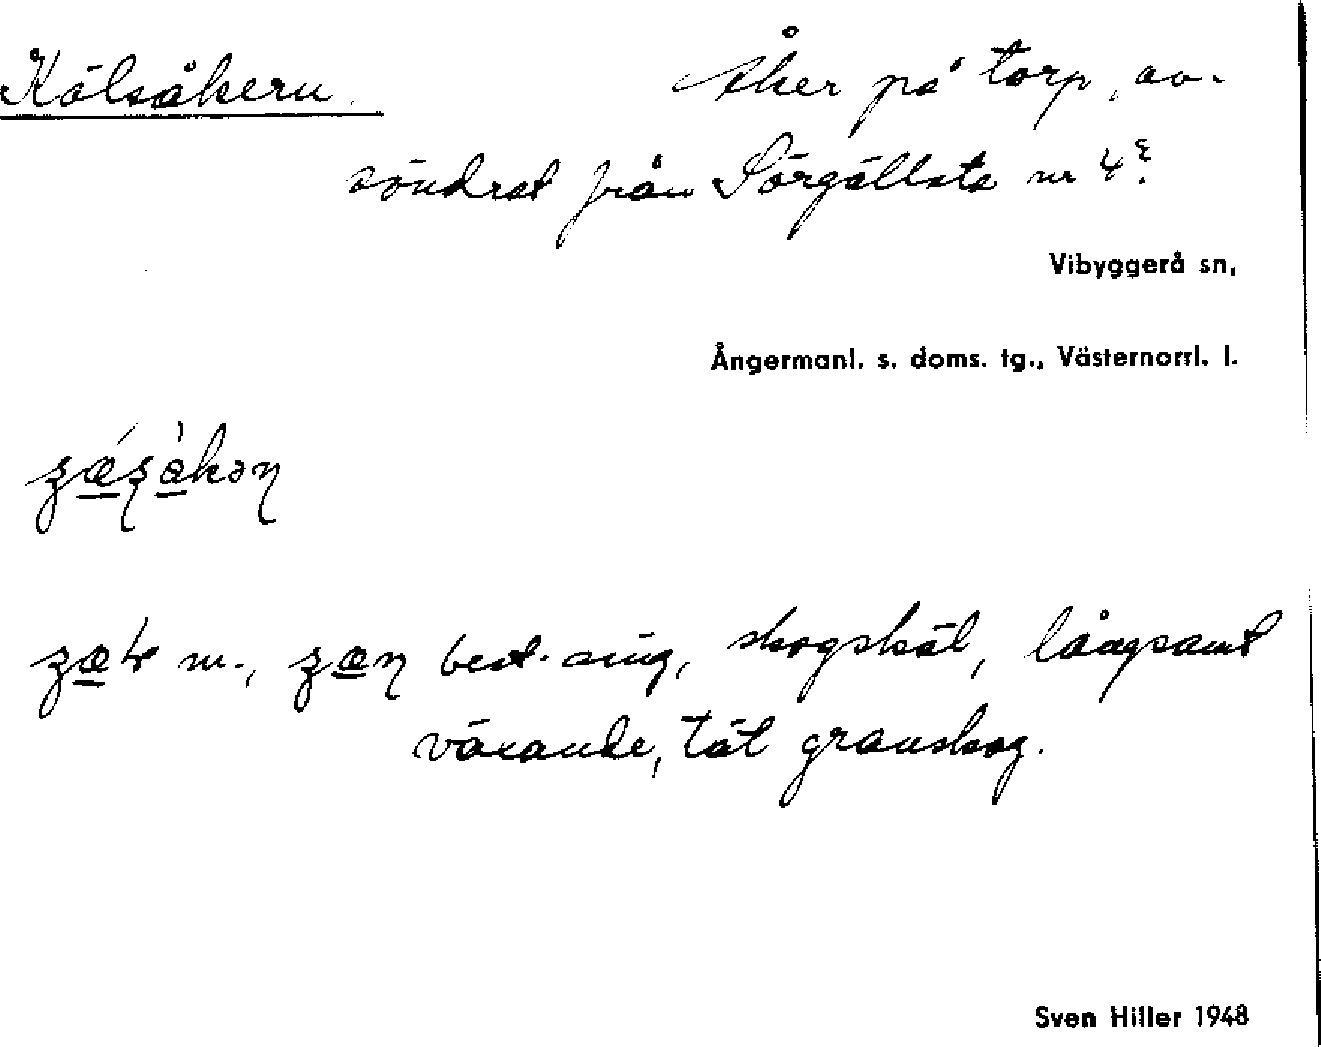 Kälsåkern. Åker på torp, av-
söndrat från Sörgällsta nr 4²
Vibyggerå sn,
Ångermanl. s. doms. tg., Västernorrl. l.
m., best. sing, skogskäl, långsamt
växande, tät granskog.
Sven Hiller 1948